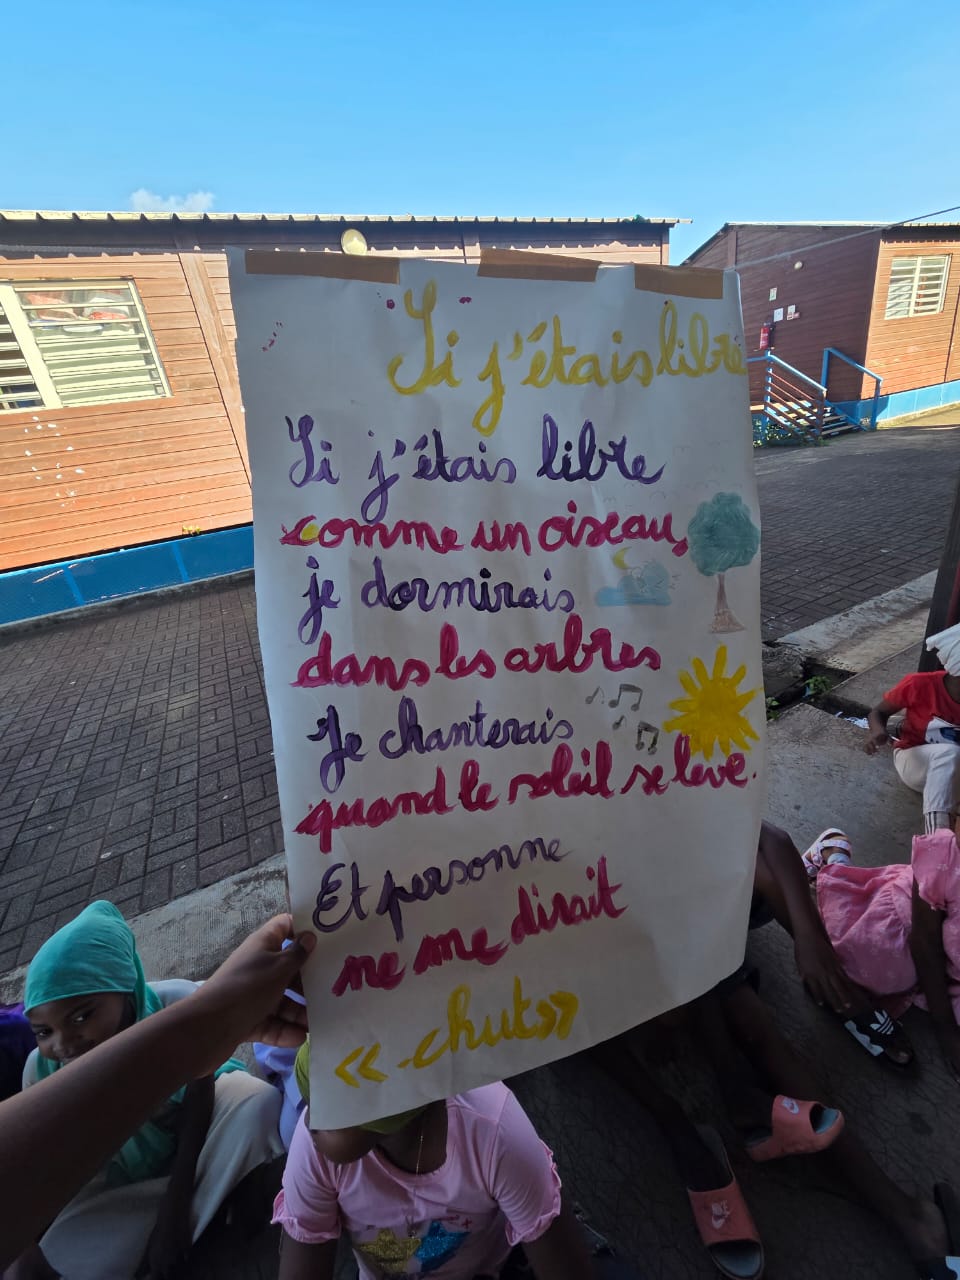 Si j'étais libre
Si j'étais libre
comme un oiseau,
je dormirais
dans les arbres
Je chanterais
quand le soleil se lève.
Et personne
ne me dirait
« chut»